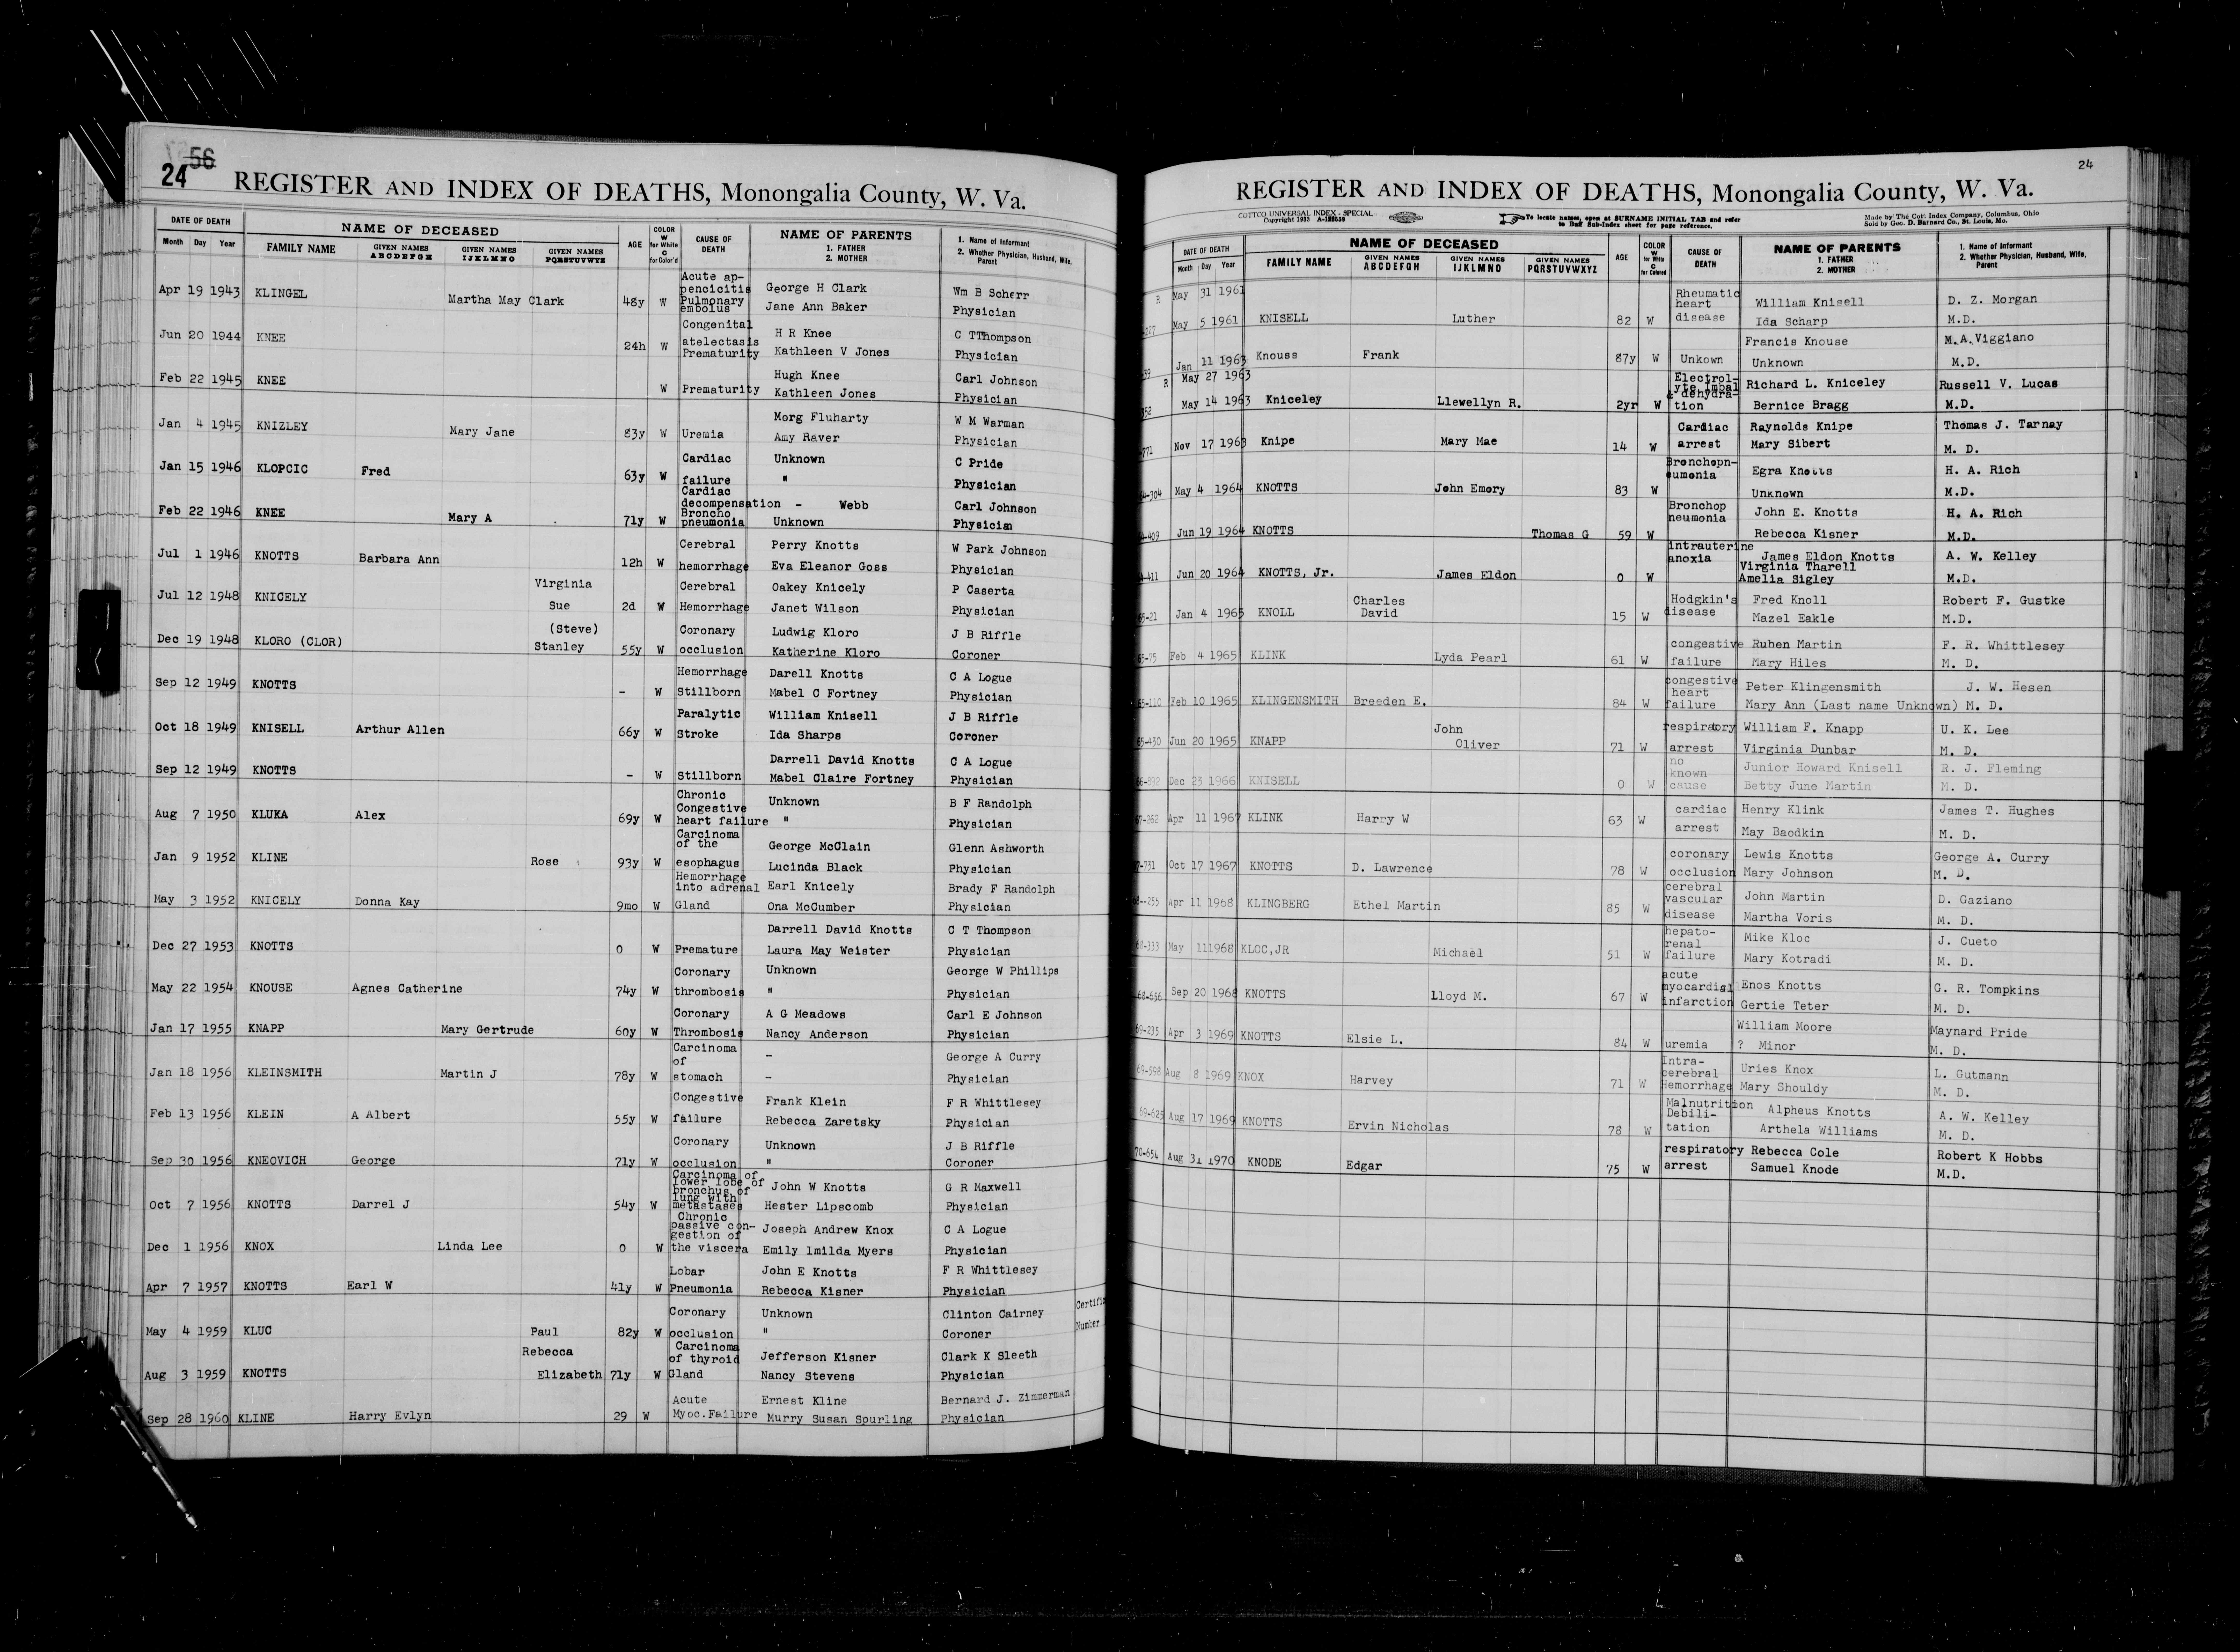 56
24
REGISTER AND INDEX OF DEATHS, Monongalia County, W. Va.
DATE OF DEATH NAME OF DECEASED AGE COLOR W for White C for Color'd CAUSE OF DEATH NAME OF PARENTS 1. FATHER 2. MOTHER 1. Name of Informant 2. Whether Physician, Husband, Wife, Parent
Month Day Year FAMILY NAME GIVEN NAMES ABCDEFGH GIVEN NAMES IJKLMNO GIVEN NAMES PQRSTUVWXYZ
Acute ap-
pencicitis George H Clark Wm B Scherr
Apr 19 1943 KLINGEL Martha May Clark 48y W Pulmonary
embolus Jane Ann Baker Physician
Congenital H R Knee C TThompson
Jun 20 1944 KNEE 24h W atelectasis
Prematurity Kathleen V Jones Physician
Hugh Knee Carl Johnson
Feb 22 1945 KNEE W Prematurity Kathleen Jones Physician
Morg Fluharty W M Warman
Jan 4 1945 KNIZLEY Mary Jane 83y W Uremia Amy Raver Physician
Cardiac Unknown C Pride
Jan 15 1946 KLOPCIC Fred 63y W failure " Physician
Cardiac
decompensation - Webb Carl Johnson
Feb 22 1946 KNEE Mary A 71y W Broncho
pneumonia Unknown Physician
Cerebral Perry Knotts W Park Johnson
Jul 1 1946 KNOTTS Barbara Ann 12h W hemorrhage Eva Eleanor Goss Physician
Virginia Cerebral Oakey Knicely P Caserta
Jul 12 1948 KNICELY Sue 2d W Hemorrhage Janet Wilson Physician
(Steve) Coronary Ludwig Kloro J B Riffle
Dec 19 1948 KLORO (CLOR) Stanley 55y W occlusion Katherine Kloro Coroner
Hemorrhage Darell Knotts C A Logue
Sep 12 1949 KNOTTS - W Stillborn Mabel C Fortney Physician
Paralytic William Knisell J B Riffle
Oct 18 1949 KNISELL Arthur Allen 66y W Stroke Ida Sharps Coroner
Darrell David Knotts C A Logue
Sep 12 1949 KNOTTS - W Stillborn Mabel Claire Fortney Physician
Chronic
Congestive Unknown B F Randolph
Aug 7 1950 KLUKA Alex 69y W heart failure " Physician
Carcinoma
of the George McClain Glenn Ashworth
Jan 9 1952 KLINE Rose 93y W esophagus Lucinda Black Physician
Hemorrhage
into adrenal Earl Knicely Brady F Randolph
May 3 1952 KNICELY Donna Kay 9mo W Gland Ona McCumber Physician
Darrell David Knotts C T Thompson
Dec 27 1953 KNOTTS 0 W Premature Laura May Weister Physician
Coronary Unknown George W Phillips
May 22 1954 KNOUSE Agnes Catherine 74y W thrombosis " Physician
Coronary A G Meadows Carl E Johnson
Jan 17 1955 KNAPP Mary Gertrude 60y W Thrombosis Nancy Anderson Physician
Carcinoma
of - George A Curry
Jan 18 1956 KLEINSMITH Martin J 78y W stomach - Physician
Congestive Frank Klein F R Whittlesey
Feb 13 1956 KLEIN A Albert 55y W failure Rebecca Zaretsky Physician
Coronary Unknown J B Riffle
Sep 30 1956 KNEOVICH George 71y W occlusion " Coroner
Carcinoma of
lower lobe of
bronchus of John W Knotts G R Maxwell
lung with
Oct 7 1956 KNOTTS Darrel J 54y W metastases Hester Lipscomb Physician
Chronic
passive con- Joseph Andrew Knox C A Logue
gestion of
Dec 1 1956 KNOX Linda Lee 0 W the viscera Emily Imilda Myers Physician
Lobar John E Knotts F R Whittlesey
Apr 7 1957 KNOTTS Earl W 41y W Pneumonia Rebecca Kisner Physician
Coronary Unknown Clinton Cairney
May 4 1959 KLUC Paul 82y W occlusion " Coroner
Number
Rebecca Carcinoma
of thyroid Jefferson Kisner Clark K Sleeth
Aug 3 1959 KNOTTS Elizabeth 71y W Gland Nancy Stevens Physician
Acute Ernest Kline Bernard J. Zimmerman
Sep 28 1960 KLINE Harry Evlyn 29 W Myoc.Failure Murry Susan Spurling Physician
24
REGISTER AND INDEX OF DEATHS, Monongalia County, W. Va.
COTTCO UNIVERSAL INDEX - SPECIAL
Copyright 1933
To locate names, open at SURNAME INITIAL TAB and refer
to Buff Sub-Index sheet for page reference.
Made by The Cott Index Company, Columbus, Ohio
Sold by Geo. D. Barnard Co., St. Louis, Mo.
DATE OF DEATH NAME OF DECEASED AGE COLOR W for White C for Colored CAUSE OF DEATH NAME OF PARENTS 1. FATHER 2. MOTHER 1. Name of Informant 2. Whether Physician, Husband, Wife, Parent
Month Day Year FAMILY NAME GIVEN NAMES ABCDEFGH GIVEN NAMES IJKLMNO GIVEN NAMES PQRSTUVWXYZ
R May 31 1961 Rheumatic
heart William Knisell D. Z. Morgan
May 5 1961 KNISELL Luther 82 W disease Ida Scharp M.D.
Francis Knouse M.A.Viggiano
Jan 11 1963 Knouss Frank 87y W Unkown Unknown M.D.
R May 27 1963 Electrol-
yte Imbal Richard L. Kniceley Russell V. Lucas
& dehydra-
May 14 1963 Kniceley Llewellyn R. 2yr W tion Bernice Bragg M.D.
Cardiac Raynolds Knipe Thomas J. Tarnay
Nov 17 1963 Knipe Mary Mae 14 W arrest Mary Sibert M. D.
Bronchopn-
eumonia Egra Knotts H. A. Rich
May 4 1964 KNOTTS John Emory 83 W Unknown M.D.
Bronchop
neumonia John E. Knotts H. A. Rich
Jun 19 1964 KNOTTS Thomas G 59 W Rebecca Kisner M.D.
intrauterine
anoxia James Eldon Knotts A. W. Kelley
Virginia Tharell
Jun 20 1964 KNOTTS, Jr. James Eldon 0 W Amelia Sigley M.D.
Charles Hodgkin's Fred Knoll Robert F. Gustke
65-21 Jan 4 1965 KNOLL David 15 W disease Mazel Eakle M.D.
congestive Ruben Martin F. R. Whittlesey
65-75 Feb 4 1965 KLINK Lyda Pearl 61 W failure Mary Hiles M. D.
congestive
heart Peter Klingensmith J. W. Hesen
65-110 Feb 10 1965 KLINGENSMITH Breeden E. 84 W failure Mary Ann (Last name Unknown) M. D.
John respiratory William F. Knapp U. K. Lee
65-430 Jun 20 1965 KNAPP Oliver 71 W arrest Virginia Dunbar M. D.
no
known Junior Howard Knisell R. J. Fleming
66-892 Dec 23 1966 KNISELL 0 W cause Betty June Martin M. D.
cardiac Henry Klink James T. Hughes
67-262 Apr 11 1967 KLINK Harry W 63 W arrest May Baodkin M. D.
coronary Lewis Knotts George A. Curry
Oct 17 1967 KNOTTS D. Lawrence 78 W occlusion Mary Johnson M. D.
cerebral
vascular John Martin D. Gaziano
Apr 11 1968 KLINGBERG Ethel Martin 85 W disease Martha Voris M. D.
hepato-
renal Mike Kloc J. Cueto
68-333 May 11 1968 KLOC,JR Michael 51 W failure Mary Kotradi M. D.
acute
myocardial Enos Knotts G. R. Tompkins
68-656 Sep 20 1968 KNOTTS Lloyd M. 67 W infarction Gertie Teter M. D.
William Moore Maynard Pride
69-235 Apr 3 1969 KNOTTS Elsie L. 84 W uremia ? Minor M. D.
Intra-
cerebral Uries Knox L. Gutmann
69-598 Aug 8 1969 KNOX Harvey 71 W Hemorrhage Mary Shouldy M. D.
Malnutrition
Debili- Alpheus Knotts A. W. Kelley
69-625 Aug 17 1969 KNOTTS Ervin Nicholas 78 W tation Arthela Williams M. D.
respiratory Rebecca Cole Robert K Hobbs
70-654 Aug 31 1970 KNODE Edgar 75 W arrest Samuel Knode M.D.